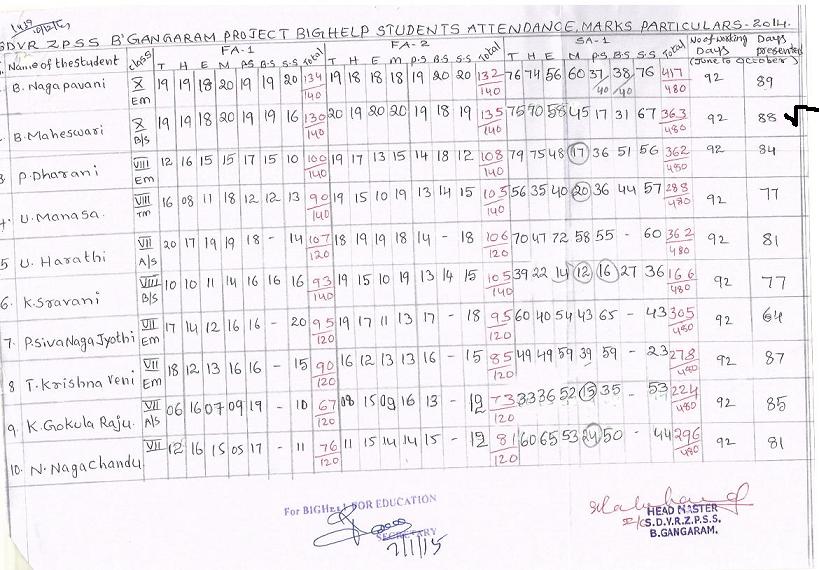 SDVR ZPSS B'GANGARAM PROJECT BIGHELP STUDENTS ATTENDANCE, MARKS PARTICULARS - 2014.
Name of the student class FA-1 FA-2 SA-1 No of working Days (June to October) Days presented
T H E M P.S B.S S.S Total T H E M P.S B.S S.S Total T H E M P.S B.S S.S Total
B. Nagapavani X Em 19 19 18 20 19 19 20 134/140 19 18 18 18 19 20 20 132/140 76 74 56 60 37/40 38/40 76 417/480 92 89
B. Maheswari X B/S 19 19 18 20 19 19 16 130/140 20 19 20 20 19 18 19 135/140 75 70 58 45 17 31 67 363/480 92 88 ✓
3 P. Dharani VIII Em 12 16 15 15 17 15 10 100/140 19 17 13 15 14 18 12 108/140 79 75 48 17 36 51 56 362/480 92 84
4. U. Manasa. VIII Tm 16 08 11 18 12 12 13 90/140 19 15 10 19 13 14 15 105/140 56 35 40 20 36 44 57 288/480 92 77
5 U. Harathi VII A/S 20 17 19 19 18 - 14 107/120 18 19 19 18 14 - 18 106/120 70 47 72 58 55 - 60 362/480 92 81
6. K. Sravani VIII B/S 10 10 11 14 16 16 16 93/140 19 15 10 19 13 14 15 105/140 39 22 14 12 16 27 36 166/480 92 77
7. P. Siva Naga Jyothi VII Em 17 14 12 16 16 - 20 95/120 19 17 11 13 17 - 18 95/120 60 40 54 43 65 - 43 305/480 92 64
8 T. Krishna Veni VII Em 18 12 13 16 16 - 15 90/120 16 12 13 13 16 - 15 85/120 49 49 59 39 59 - 23 278/480 92 87
9. K. Gokula Raju VII A/S 06 16 07 09 19 - 10 67/120 08 15 09 16 13 - 12 73/120 33 36 52 15 35 - 53 224/480 92 85
10. N. Naga Chandu VII 12 16 15 05 17 - 11 76/120 11 15 14 14 15 - 12 81/120 60 65 53 24 50 - 44 296/480 92 81
For BIGHELP FOR EDUCATION
SECRETARY
2/1/15
HEAD MASTER
I/C S.D.V.R.Z.P.S.S.
B.GANGARAM.